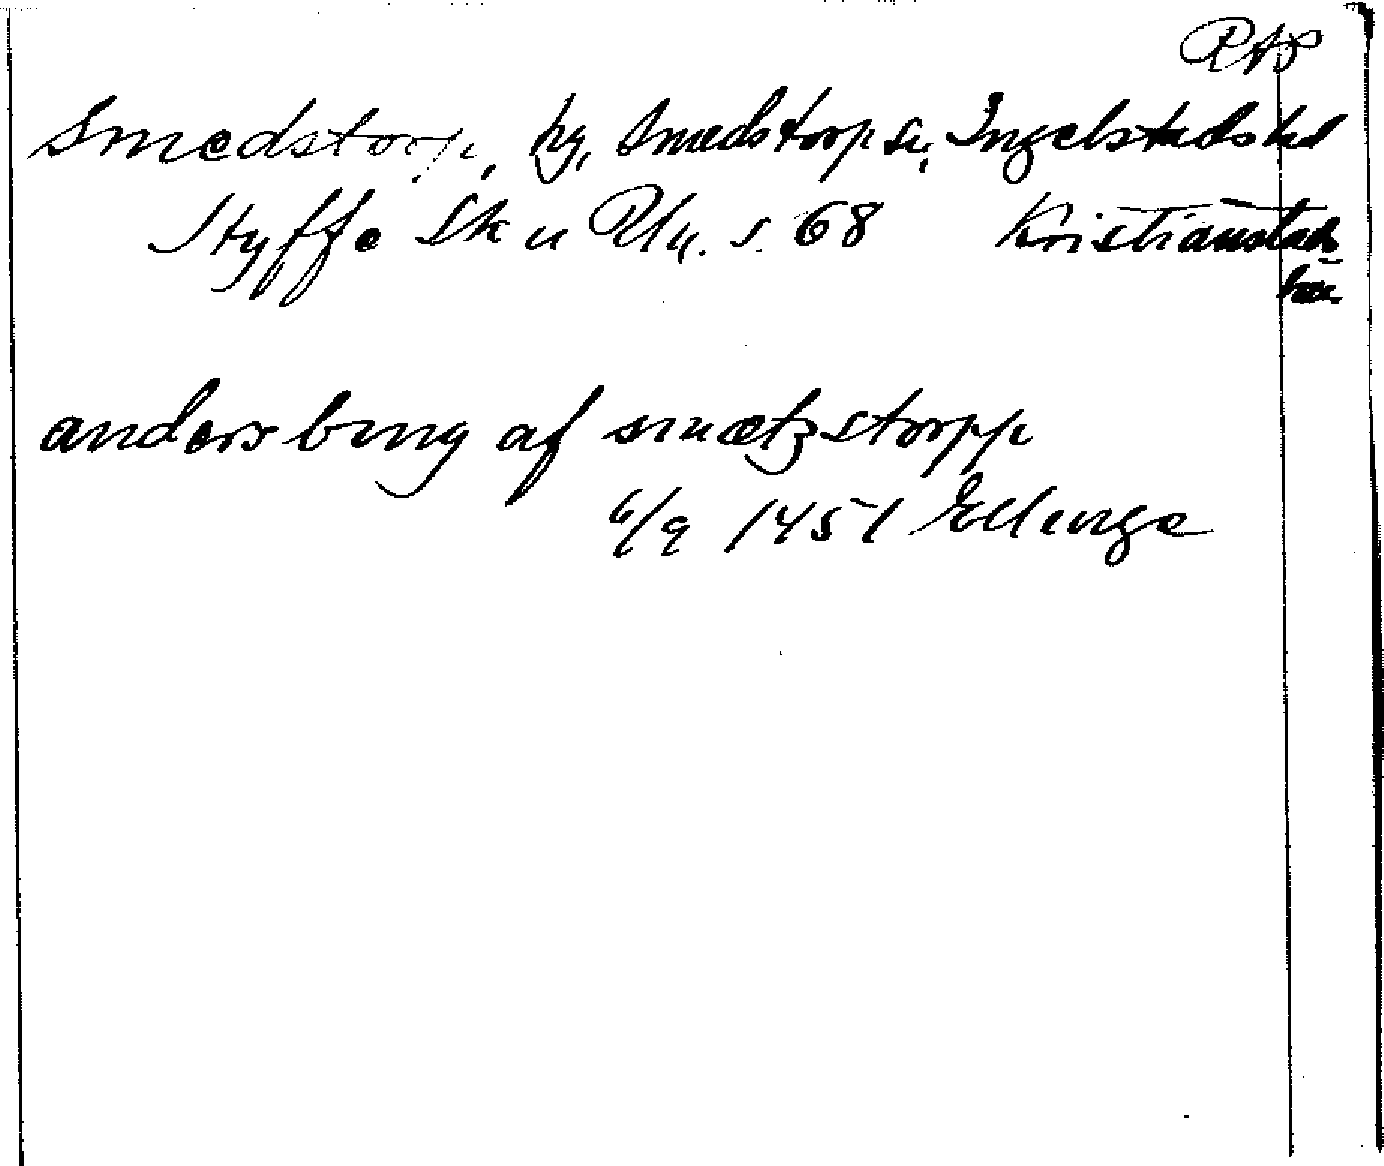 RAP
Smedstorp, hg, Smedstorp sn, Ingelstads hd
Styffe Sk u Uu. s. 68 Kristianstads
län
anders bing af smætzstorpp
6/9 1451 Ellinge